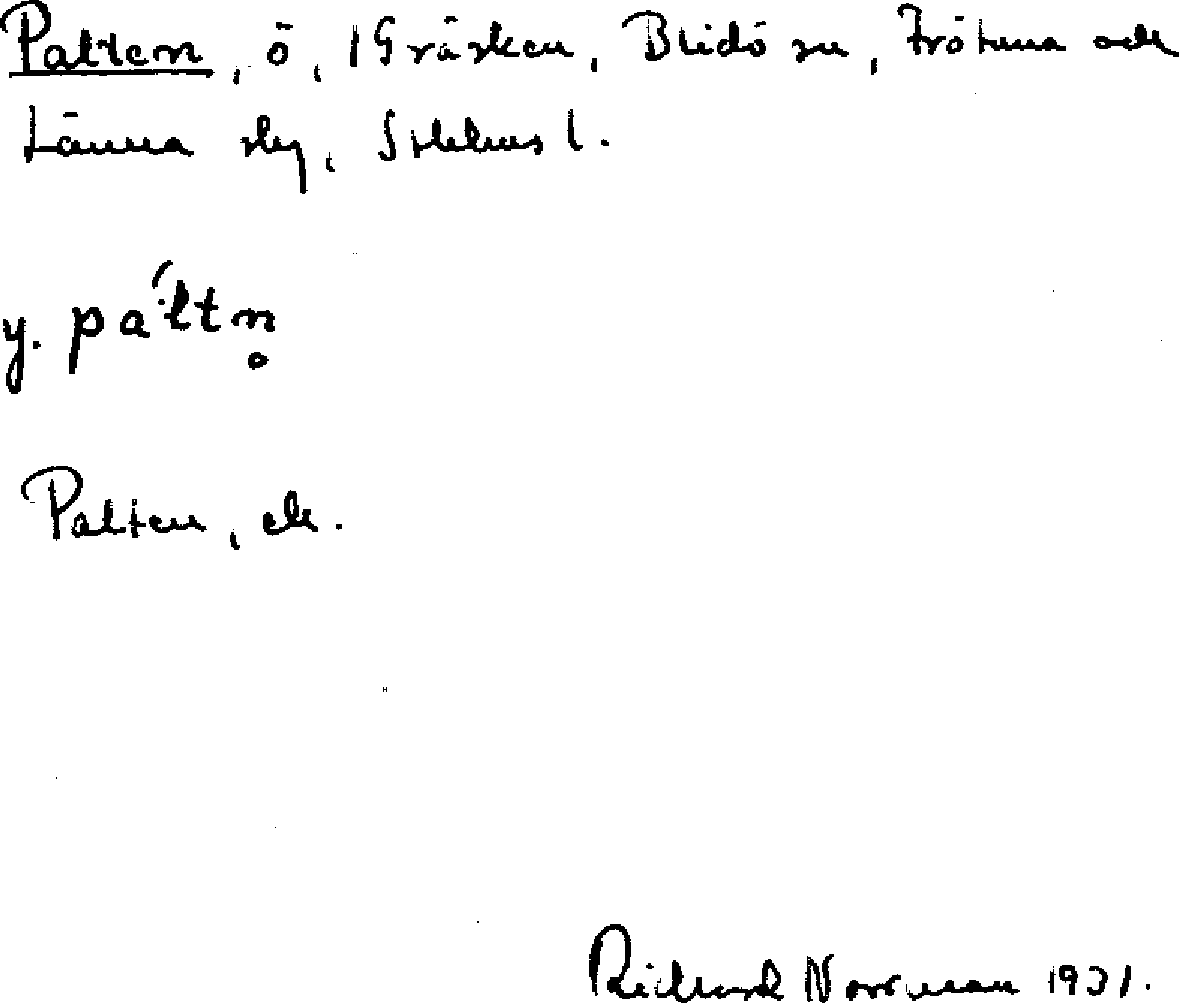 Palten, ö, i Gräsken, Blidö sn, Frötuna och
Länna skg, Sthlms l.
y. pa ́ltn̥
Palten, ek.
Richard Norrman 1931.